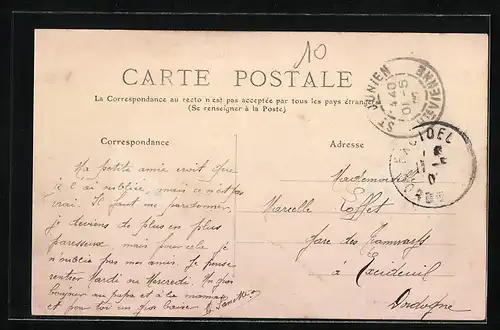 10
CARTE POSTALE
La Correspondance au recto n'est pas acceptée par tous les pays étrangers
(Se renseigner à la Poste)
ST JUNIEN
HTE VIENNE
Correspondance
Ma petite amie croit que
je l'ai oubliée, mais ce n'est pas
vrai. Il faut me pardonner,
je deviens de plus en plus
paresseux, mais pour cela je
n'oublie pas mes amis. Je pense
rentrer Mardi ou Mercredi. Un gros
bonjour au papa et à la maman
et pour toi un gros baiser
Adresse
Mademoiselle
Marcelle
Gare des Tramways
à
Dordogne